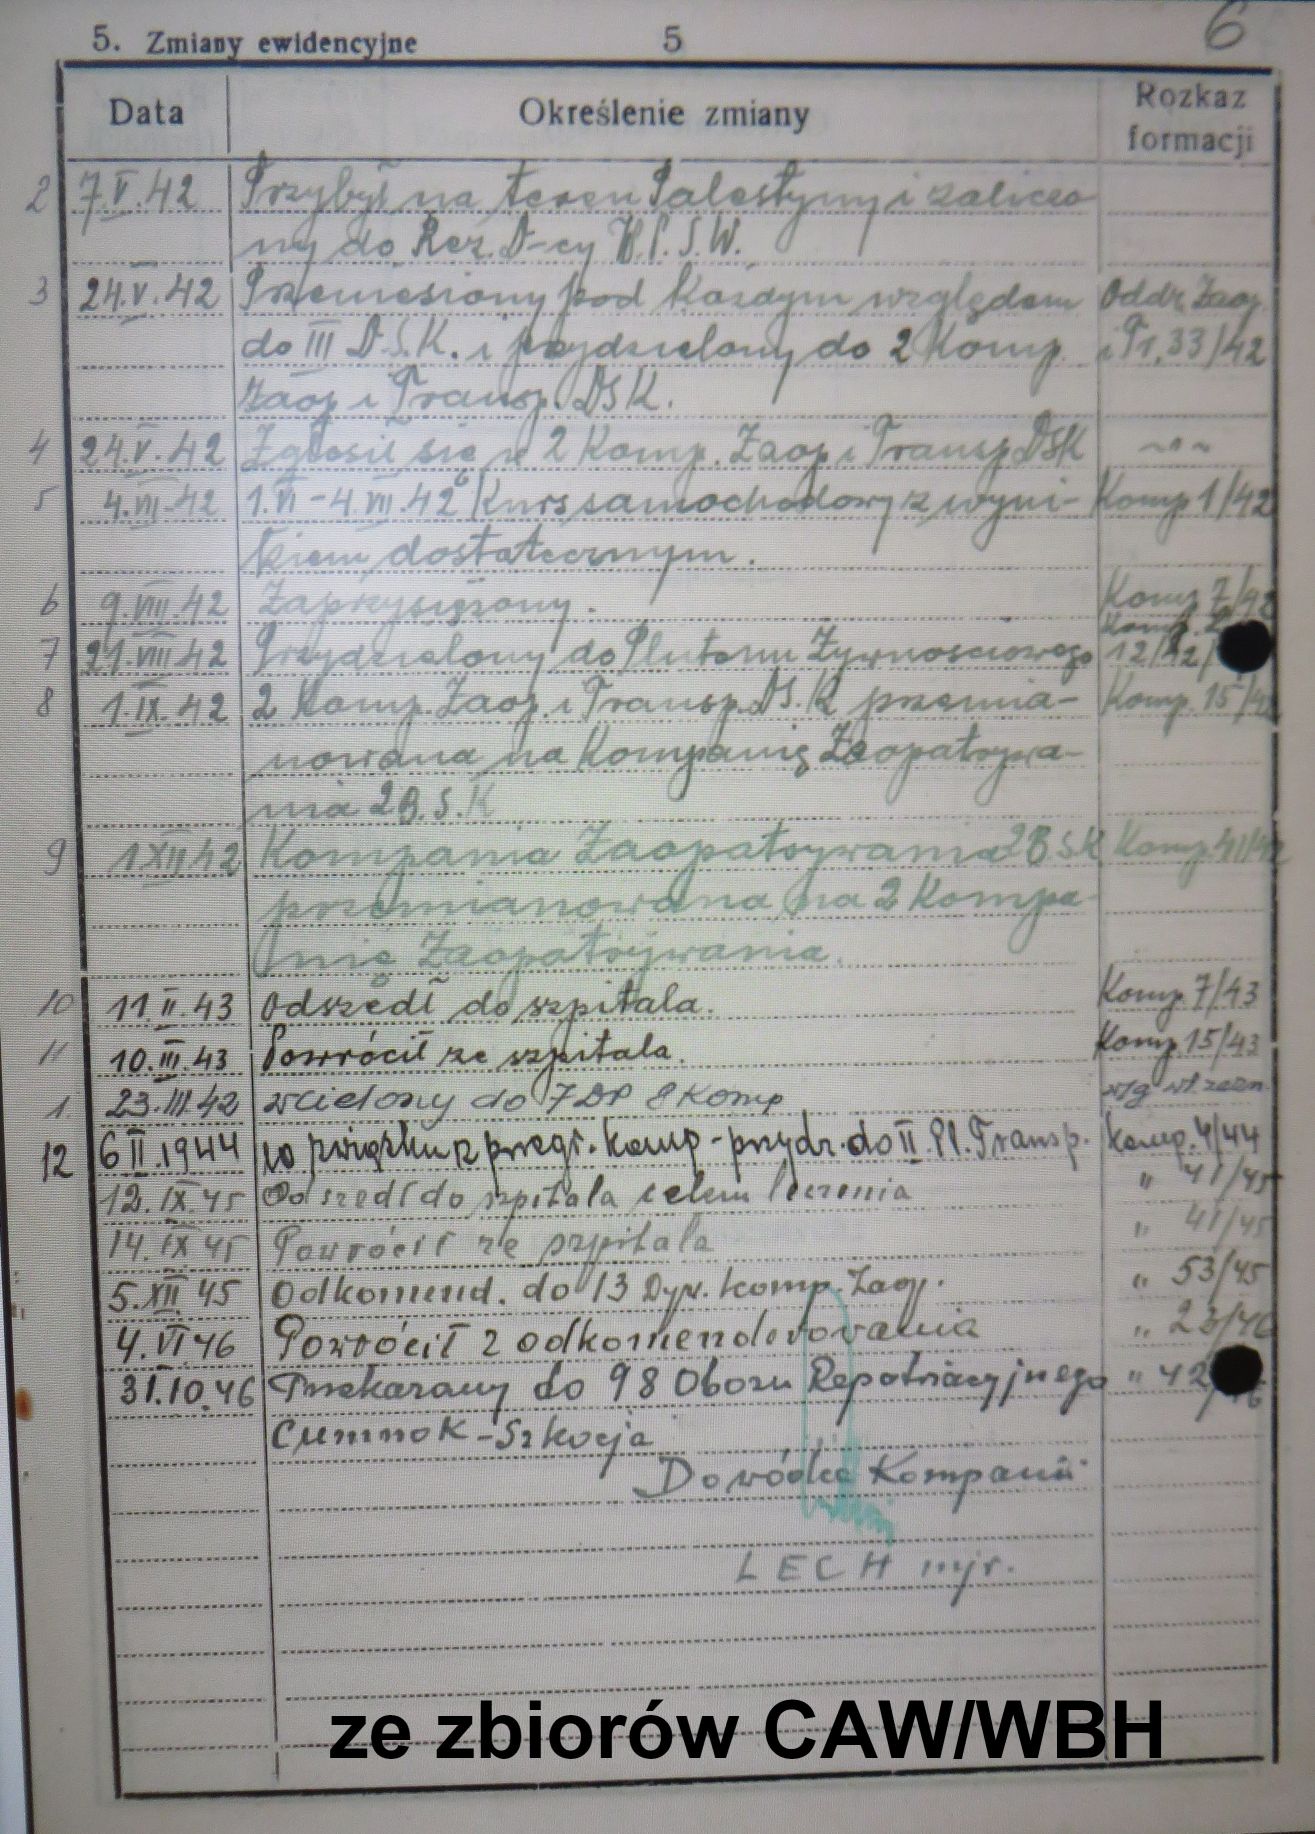 5. Zmiany ewidencyjne 5 6
Data Określenie zmiany Rozkaz formacji
2 7.V.42 Przybył na teren Palestyny i zaliczo
ny do Rez. D-cy W.P.Ś.W.
3 24.V.42 Przeniesiony pod każdym względem Oddz. Zaop.
do III D.S.K. i przydzielony do 2 Komp. i Tr. 33/42
Zaop i Transp. DSK.
4 24.V.42 Zgłosił się w 2 Komp. Zaop i Transp. DSK —"—
5 4.VII.42 1.VI-4.VII.42 Kurs samochodowy z wyni- Komp 1/42
kiem dostatecznym.
6 9.VIII.42 Zaprzysiężony. Komp 7/42
7 21.VIII.42 Przydzielony do Plutonu Żywnościowego 12/42
8 1.IX.42 2 Komp. Zaop. i Transp. DS.K przemia- Komp. 15/42
nowana na Kompanię Zaopatrywa-
nia 2B.S.K
9 1XII42 Kompania Zaopatrywania 2BSK Komp 41/42
przemianowana na 2 Kompa-
nię Zaopatrywania.
10 11.II.43 Odszedł do szpitala. Komp. 7/43
11 10.III.43 Powrócił ze szpitala. Komp. 15/43
1. 23.III.42 wcielony do 7DP 8Komp wg wł. zezn.
12 6II.1944 w związku z przegr. komp - przydz. do II Pl. Transp. Komp. 4/44
12.IX.45 Odszedł do szpitala celem leczenia " 41/45
14.IX45 Powrócił ze szpitala " 41/45
5.XII.45 Odkomend. do 13 Dyw. komp. Zaop. " 53/45
4.VI46 Powrócił z odkomenderovania " 23/46
31.10.46 Przekazany do 98 Obozu Repatriacyjnego " 42
Cumnok-Szkocja
Dowódca Kompanii
LECH mjr.
ze zbiorów CAW/WBH